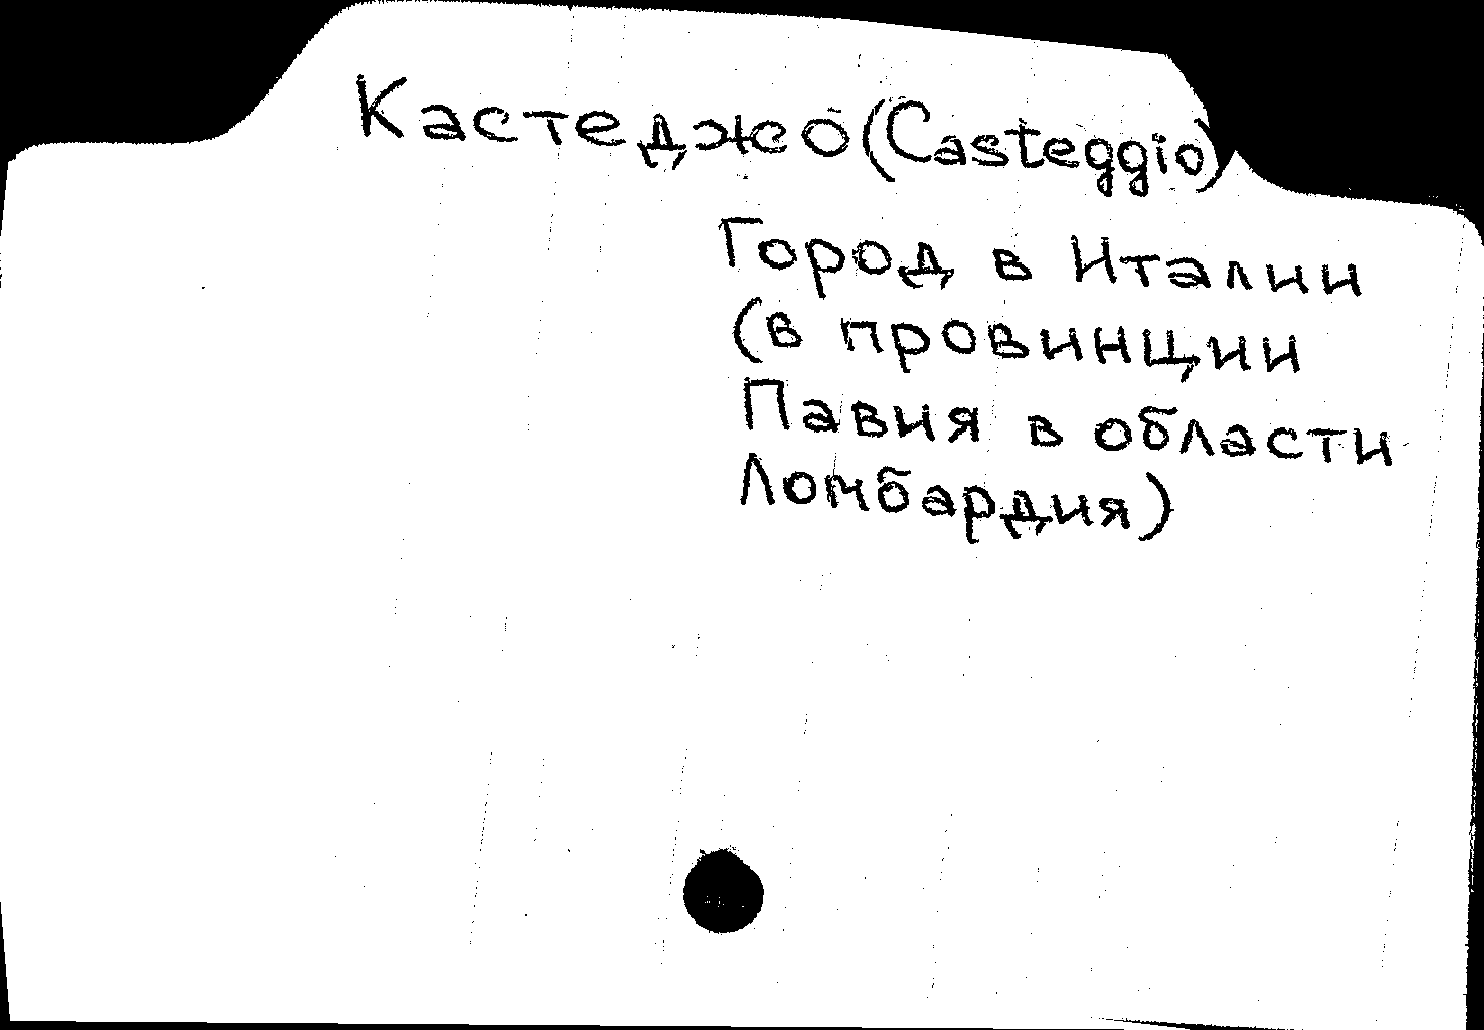 Кастеджо (Casteggio)
Город в Италии
(в провинции
Павия в области
Ломбардия)